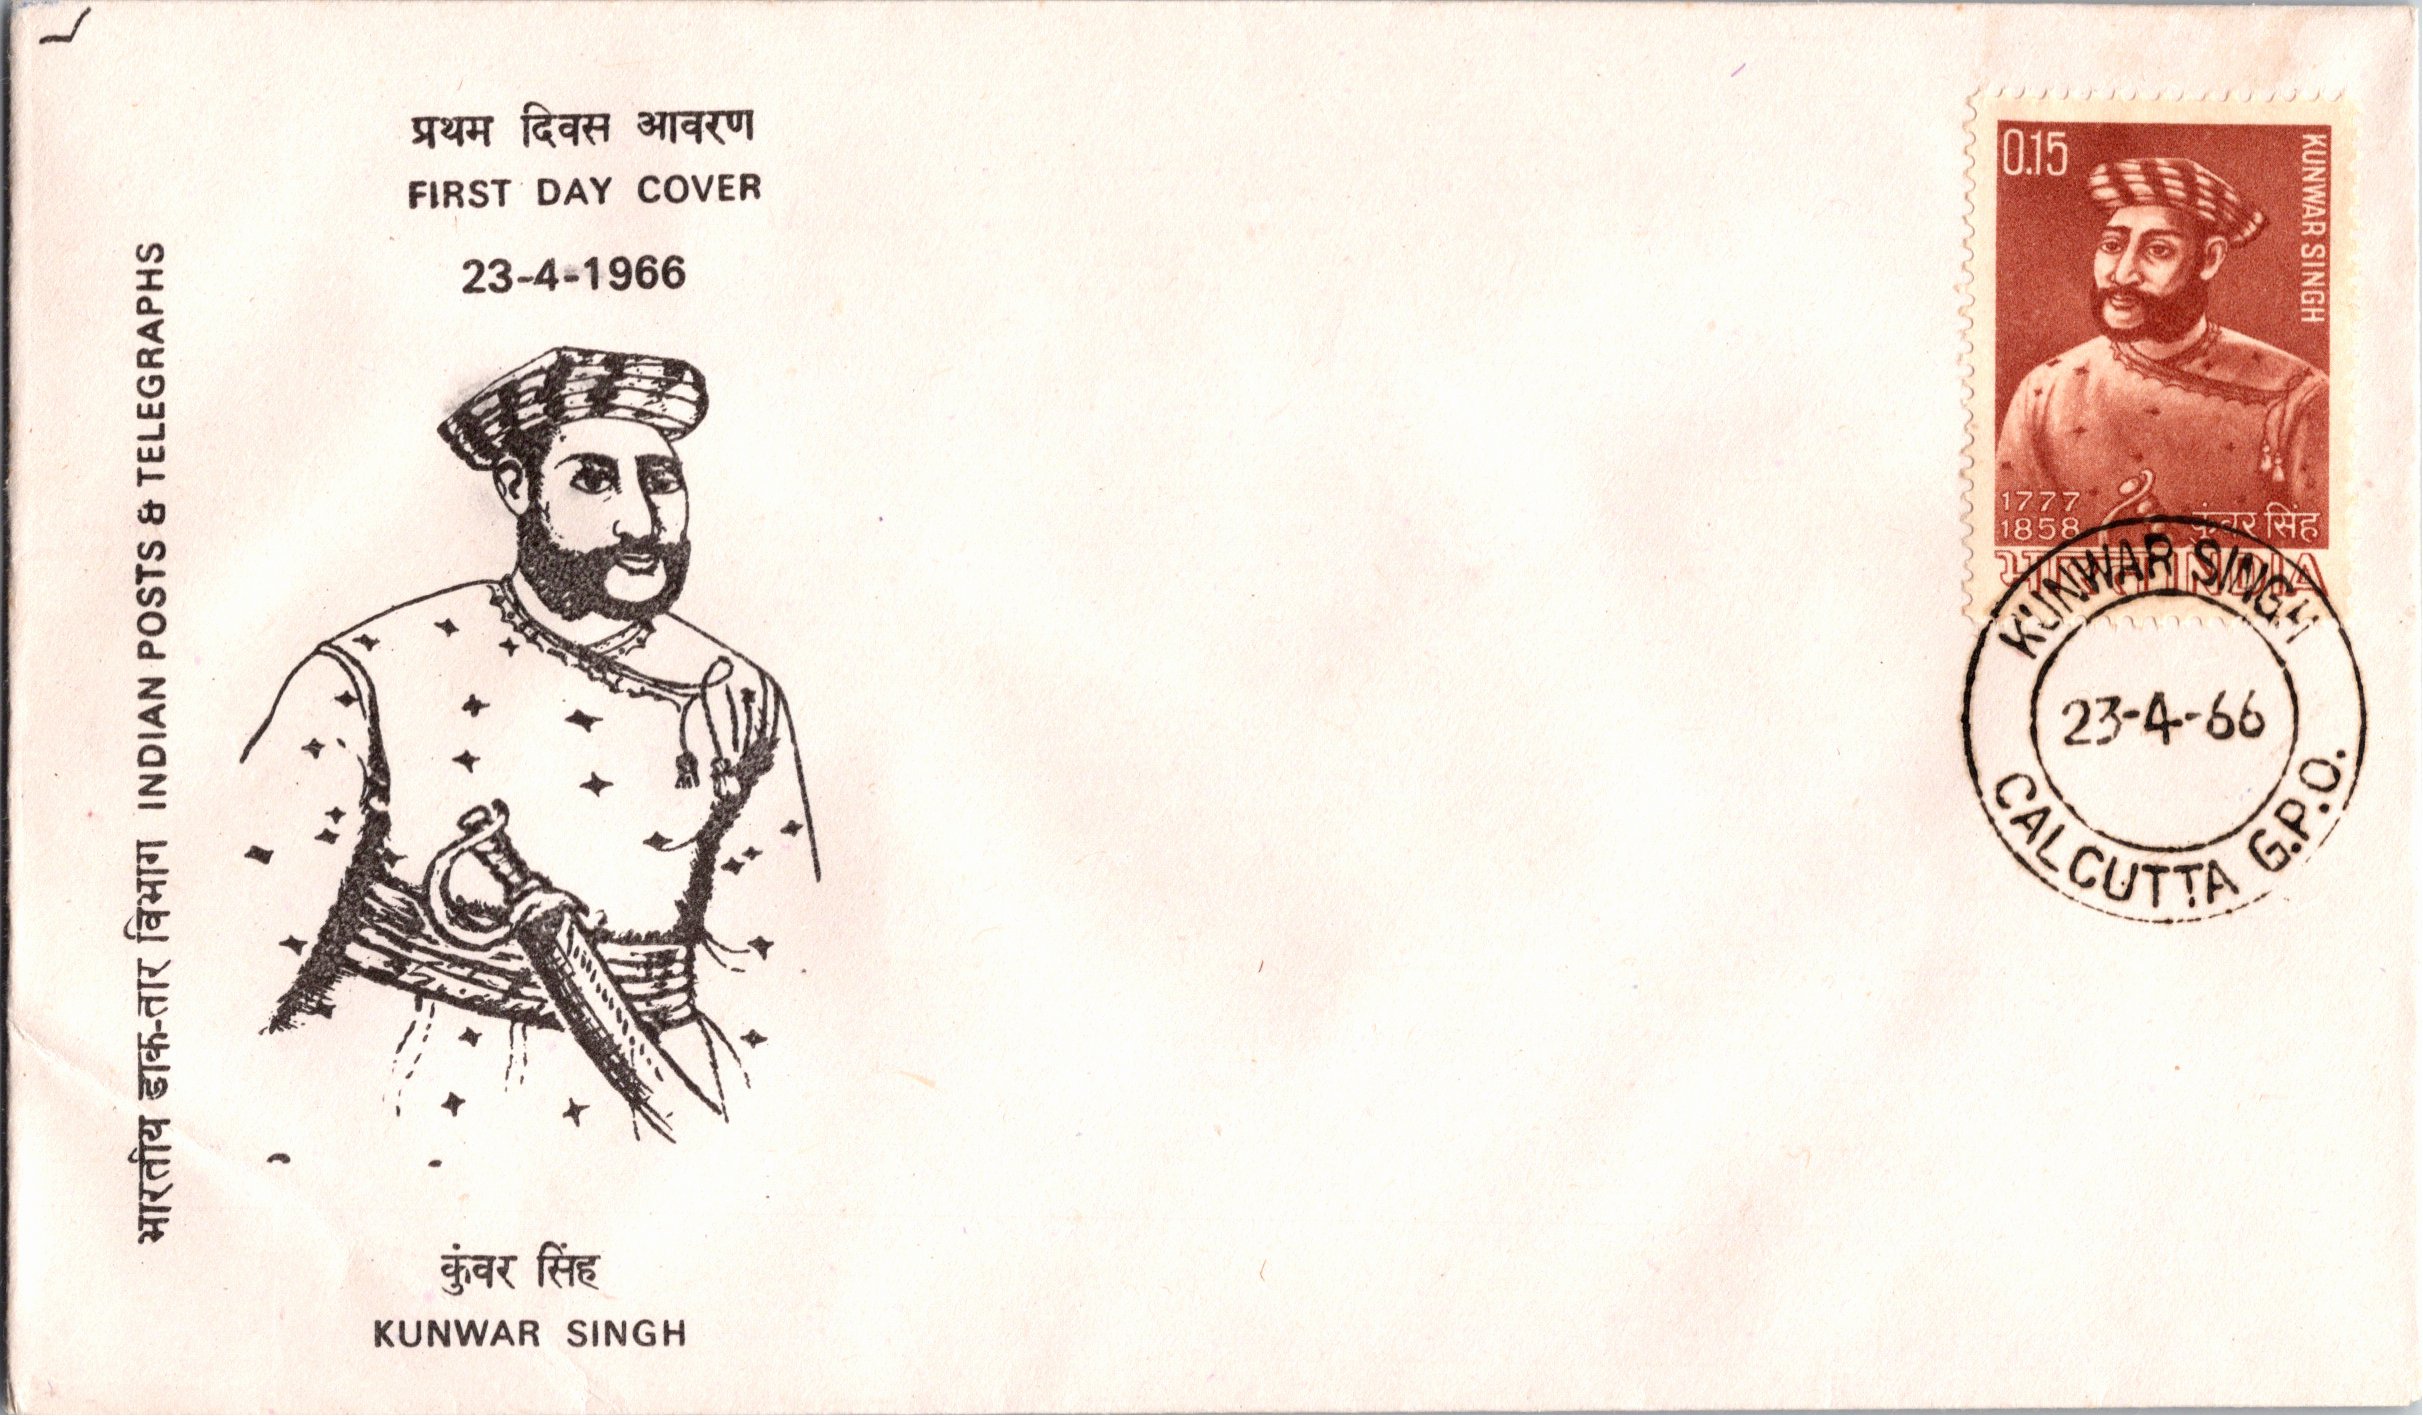 प्रथम दिवस आवरण
FIRST DAY COVER
23-4-1966
भारतीय डाक-तार विभाग INDIAN POSTS & TELEGRAPHS
कुंवर सिंह
KUNWAR SINGH
0.15
KUNWAR SINGH
1777
1858
कुंवर सिंह
भारत INDIA
KUNWAR SINGH
23-4-66
CALCUTTA G.P.O.